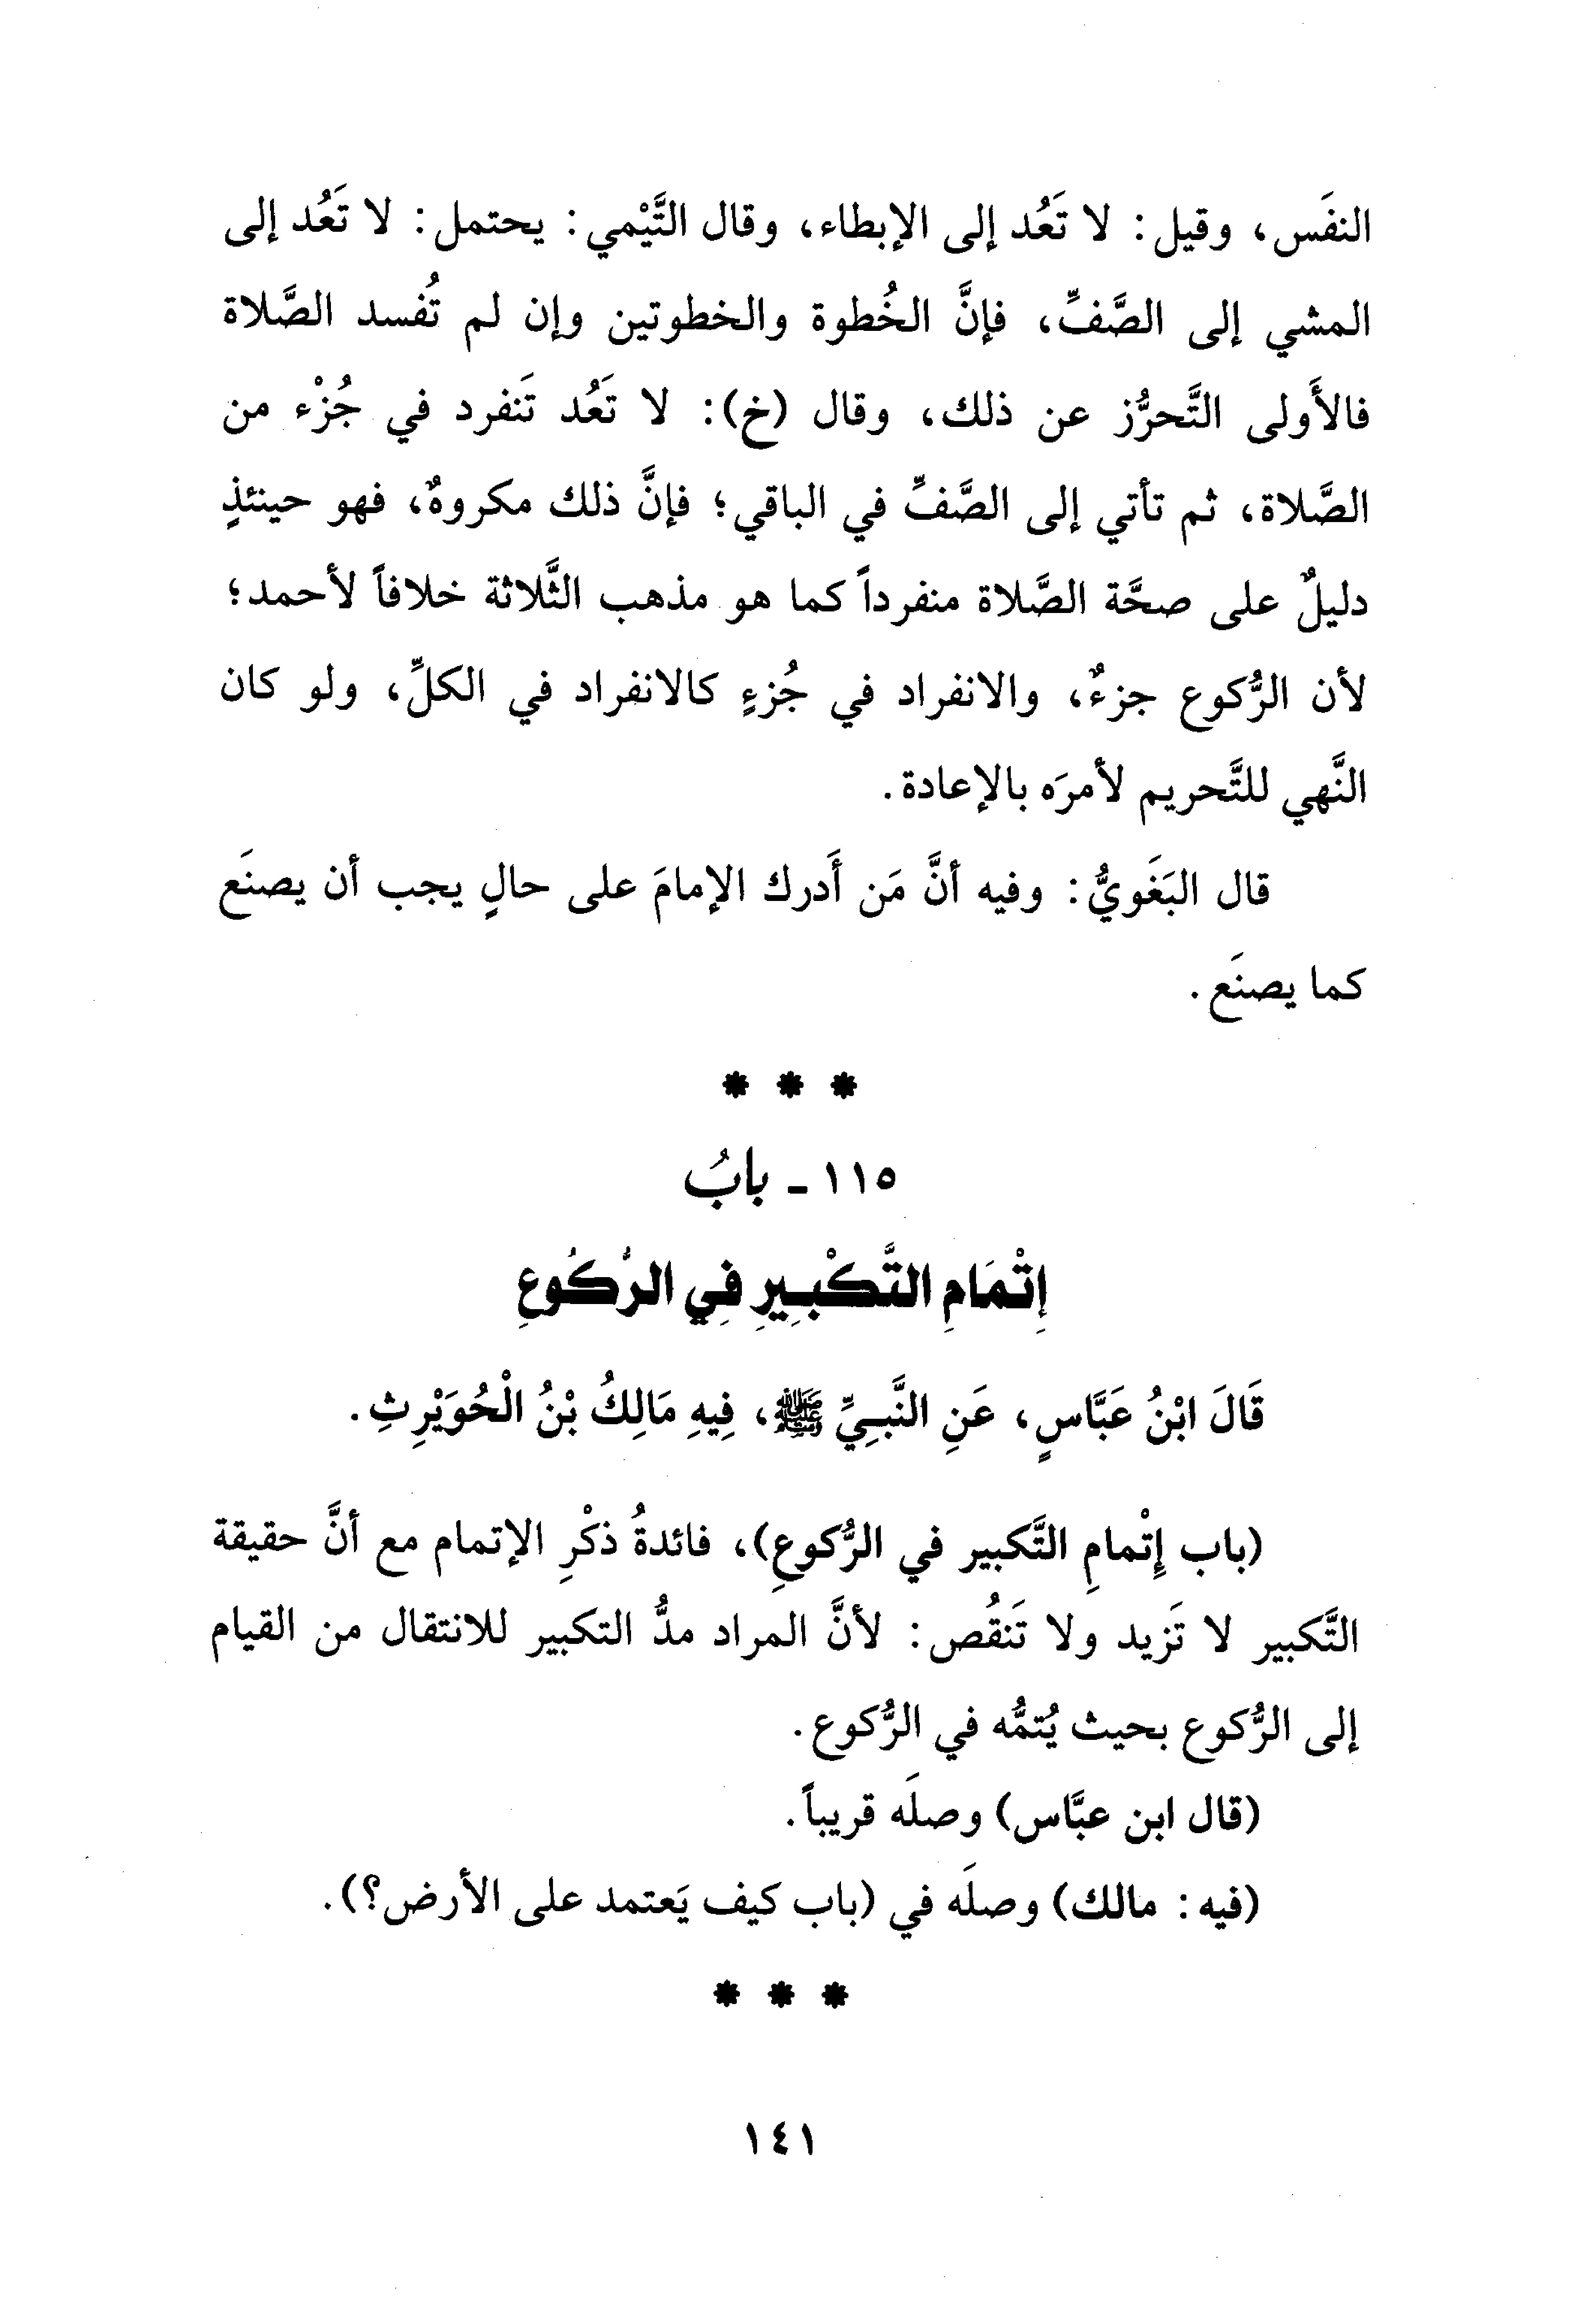 النفَس، وقيل: لا تَعُد إلى الإبطاء، وقال التَّيْمي: يحتمل: لا تَعُد إلى
المشي إلى الصَّفِّ، فإنَّ الخُطوة والخطوتين وإن لم تُفسد الصَّلاة
فالأَولى التَّحرُّز عن ذلك، وقال (خ): لا تَعُد تَنفرد في جُزْء من
الصَّلاة، ثم تأتي إلى الصَّفِّ في الباقي؛ فإنَّ ذلك مكروهٌ، فهو حينئذٍ
دليلٌ على صحَّة الصَّلاة منفرداً كما هو مذهب الثَّلاثة خلافاً لأحمد؛
لأن الرُّكوع جزءٌ، والانفراد في جُزءٍ كالانفراد في الكلِّ، ولو كان
النَّهي للتَّحريم لأمرَه بالإعادة.
قال البَغَويُّ: وفيه أنَّ مَن أَدرك الإمامَ على حالٍ يجب أن يصنَع
كما يصنَع.
* * *
١١٥ - بابُ
إِتْمَامِ التَّكْبِيرِ فِي الرُّكُوعِ
قَالَ ابْنُ عَبَّاسٍ، عَنِ النَّبِيِّ ﷺ، فِيهِ مَالِكُ بْنُ الْحُوَيْرِثِ.
(باب إِتْمامِ التَّكبير في الرُّكوعِ)، فائدةُ ذكْرِ الإتمام مع أنَّ حقيقة
التَّكبير لا تَزيد ولا تَنقُص: لأنَّ المراد مدُّ التكبير للانتقال من القيام
إلى الرُّكوع بحيث يُتمُّه في الرُّكوع.
(قال ابن عبَّاس) وصلَه قريباً.
(فيه: مالك) وصلَه في (باب كيف يَعتمد على الأرض؟).
* * *
١٤١